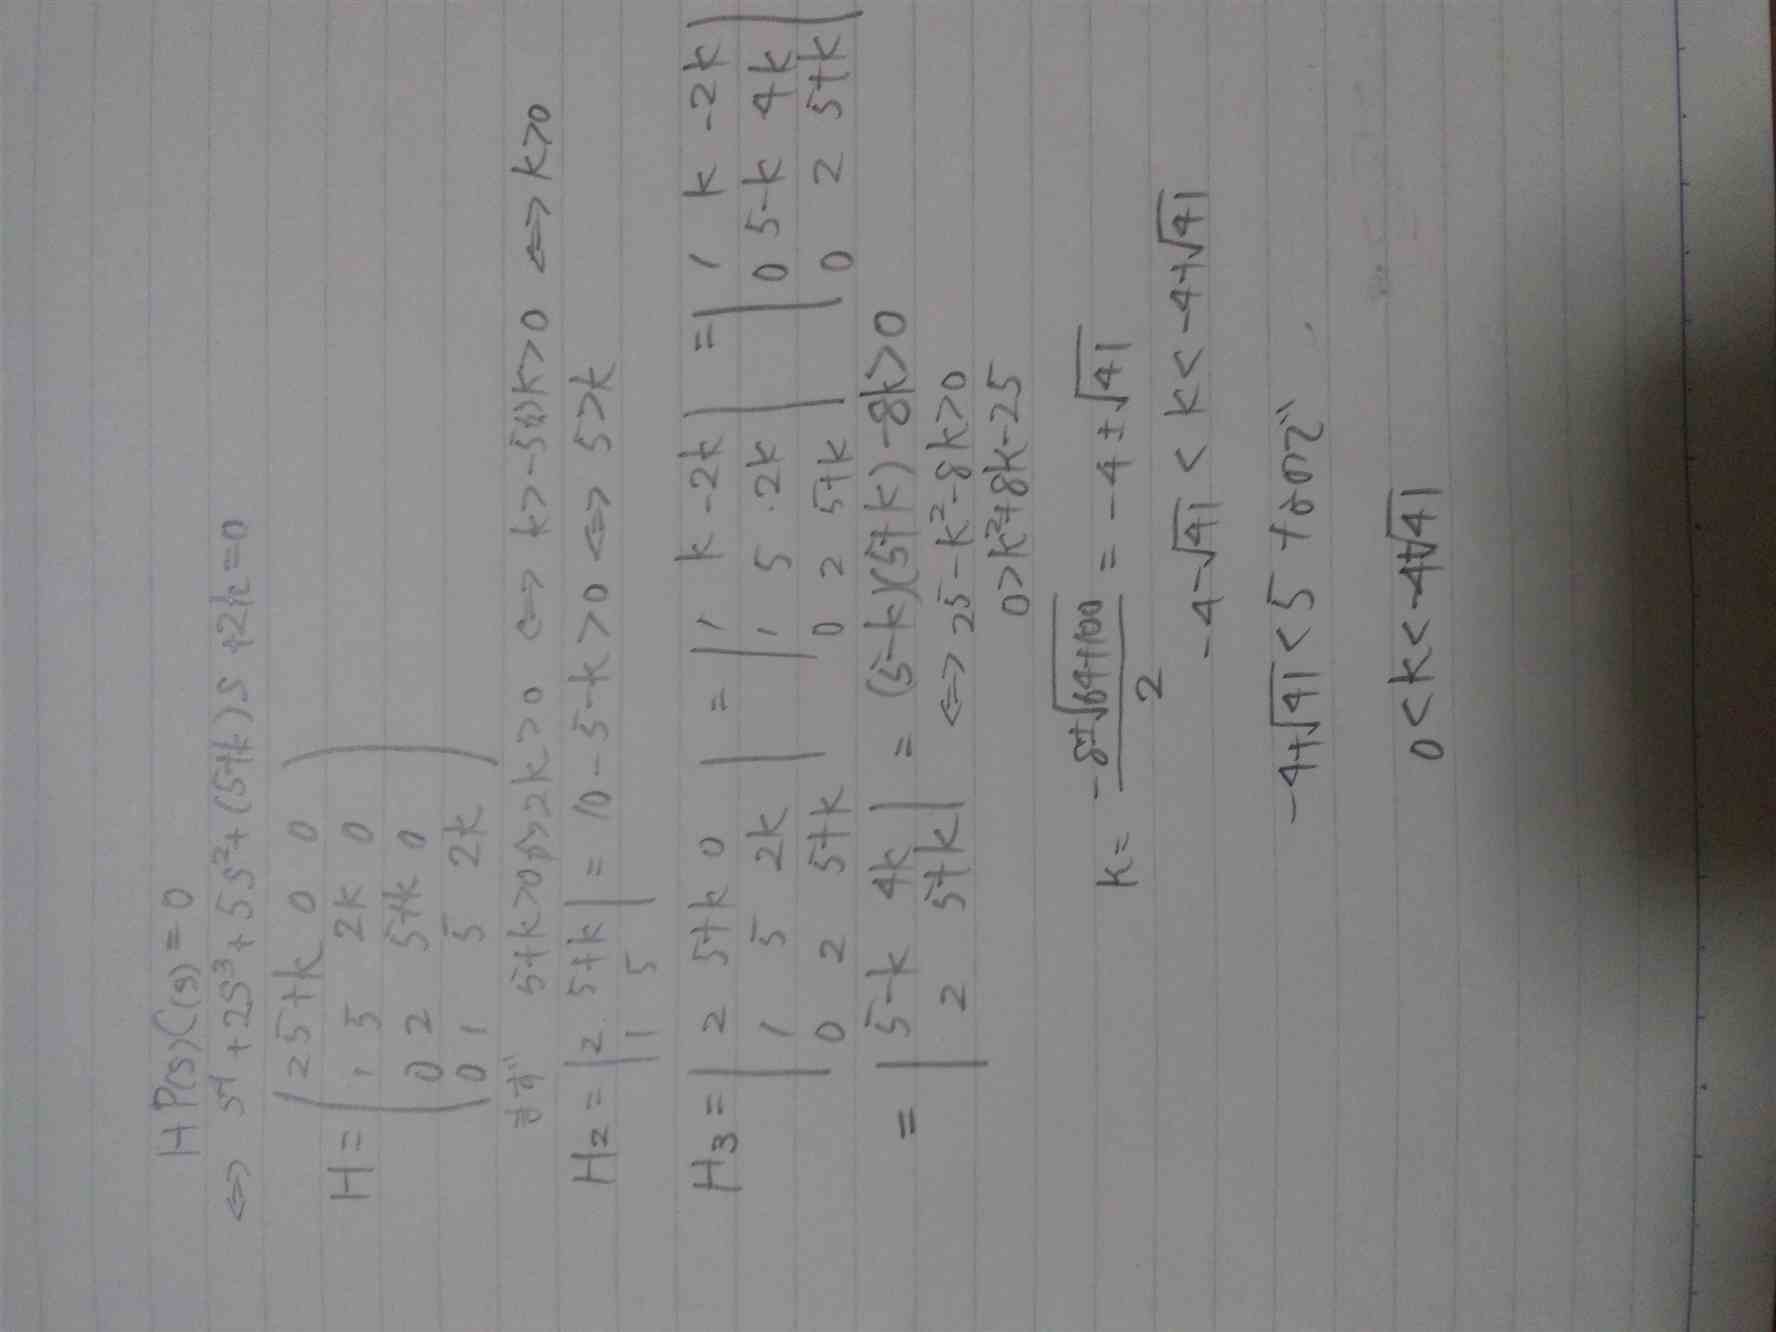 1+P(s)C(s)=0
⇔ s⁴+2s³+5s²+(5+k)s+2k=0
H= ( 2 5+k 0 0
1 5 2k 0
0 2 5+k 0
0 1 5 2k )
まず 5+k>0かつ2k>0 ⇔ k>-5かつk>0 ⇔ k>0
H₂= | 2 5+k | = 10-5-k>0 ⇔ 5>k
1 5
H₃= | 2 5+k 0 | = | 1 k -2k | = | 1 k -2k |
1 5 2k 1 5 2k 0 5-k 4k
0 2 5+k 0 2 5+k 0 2 5+k
= | 5-k 4k | = (5-k)(5+k)-8k>0
2 5+k ⇔ 25-k²-8k>0
0>k²+8k-25
k= -8±√64+100 / 2 = -4±√41
-4-√41 < k < -4+√41
-4+√41 < 5 なので
0<k<-4+√41